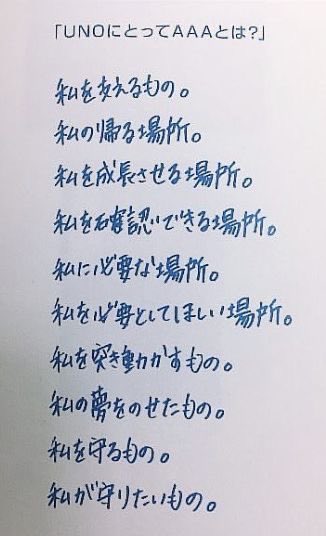 「UNOにとってAAAとは?」
私を支えるもの。
私の帰る場所。
私を成長させる場所。
私を確認できる場所。
私に必要な場所。
私を必要としてほしい場所。
私を突き動かすもの。
私の夢をのせたもの。
私を守るもの。
私が守りたいもの。